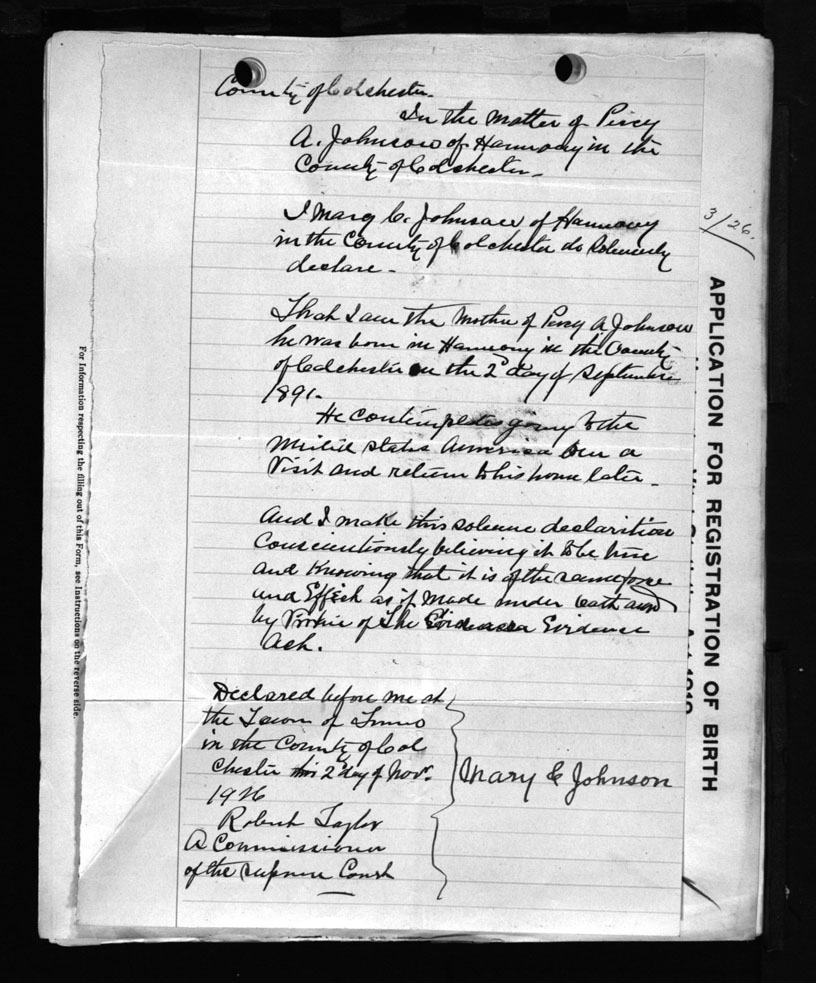 County of Colchester.
In the Matter of Percy
A. Johnson of Harmony in the
County of Colchester.
I Mary C. Johnson of Harmony
in the County of Colchester do Solemnly
declare -
That I am the Mother of Percy A Johnson
he was born in Harmony in the County
of Colchester on the 2d day of September
1891.
He contemplates going to the
United States America on a
Visit and return to his home later.
And I make this solemn declaration
Conscientiously believing it to be true
and Knowing that it is of the same force
and Effect as if made under oath and
by Virtue of The Evidence
Act.
Declared before me at
the Town of Truro
in the County of Col
chester this 2d day of Novr.
1926
Robert Taylor
A Commissioner
of the Supreme Court
Mary C Johnson
3/26.
APPLICATION FOR REGISTRATION OF BIRTH
For Information respecting the filling out of this Form, see Instructions on the reverse side.